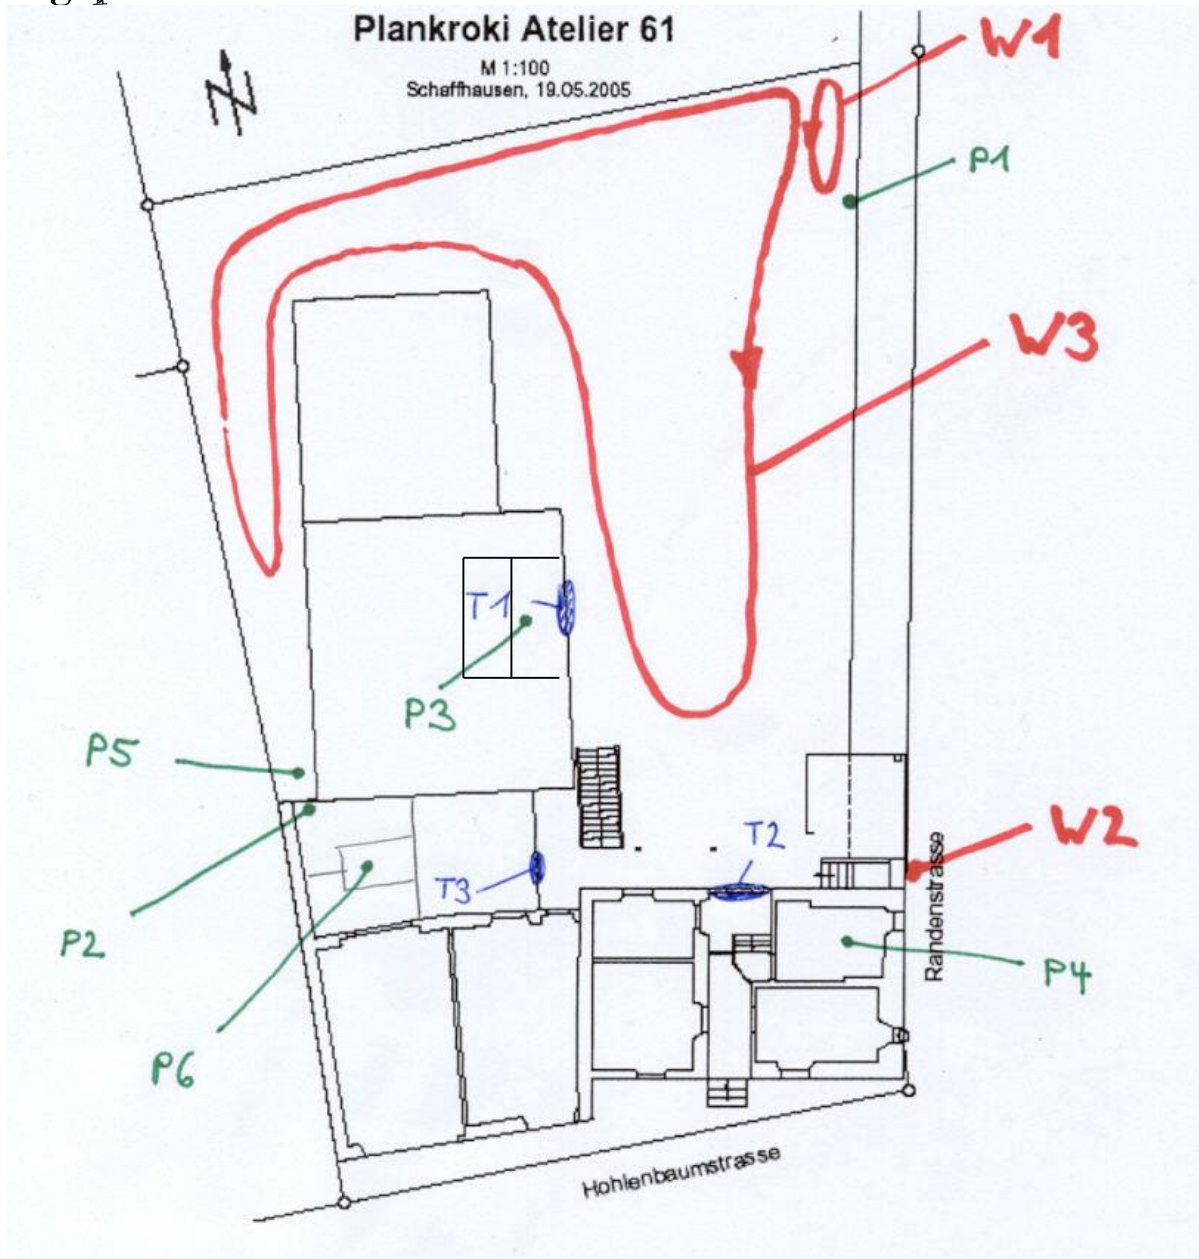 Plankroki Atelier 61
M 1:100
Schaffhausen, 19.05.2005
W1
P1
W3
T1
P3
P5
T2
W2
T3
Randenstrasse
P2
P4
P6
Hohlenbaumstrasse